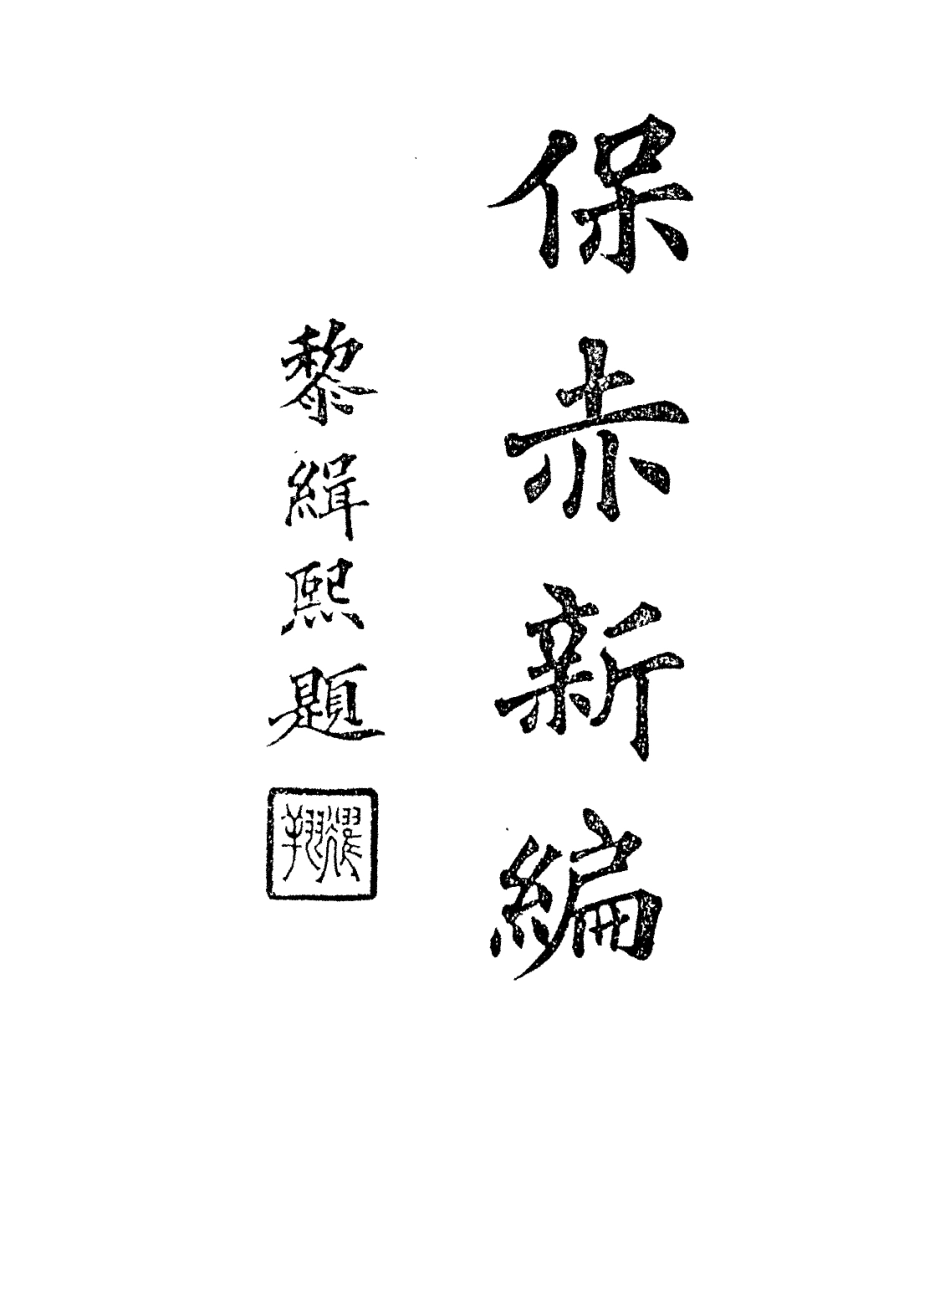 保赤新編
黎緝熙題